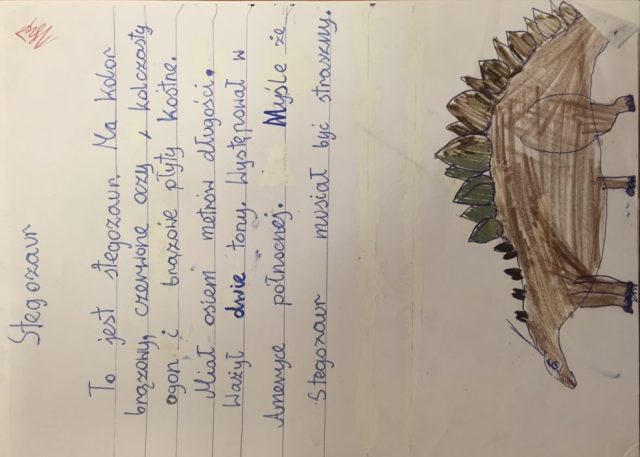 Stegozaur
To jest stegozaur. Ma kolor
brązowy, czerwone oczy, kolczasty
ogon i brązowe płyty kostne.
Miał osiem metrów długości.
Ważył dwie tony. Występował w
Ameryce północnej. Myślę że
Stegozaur musiał być straszny.